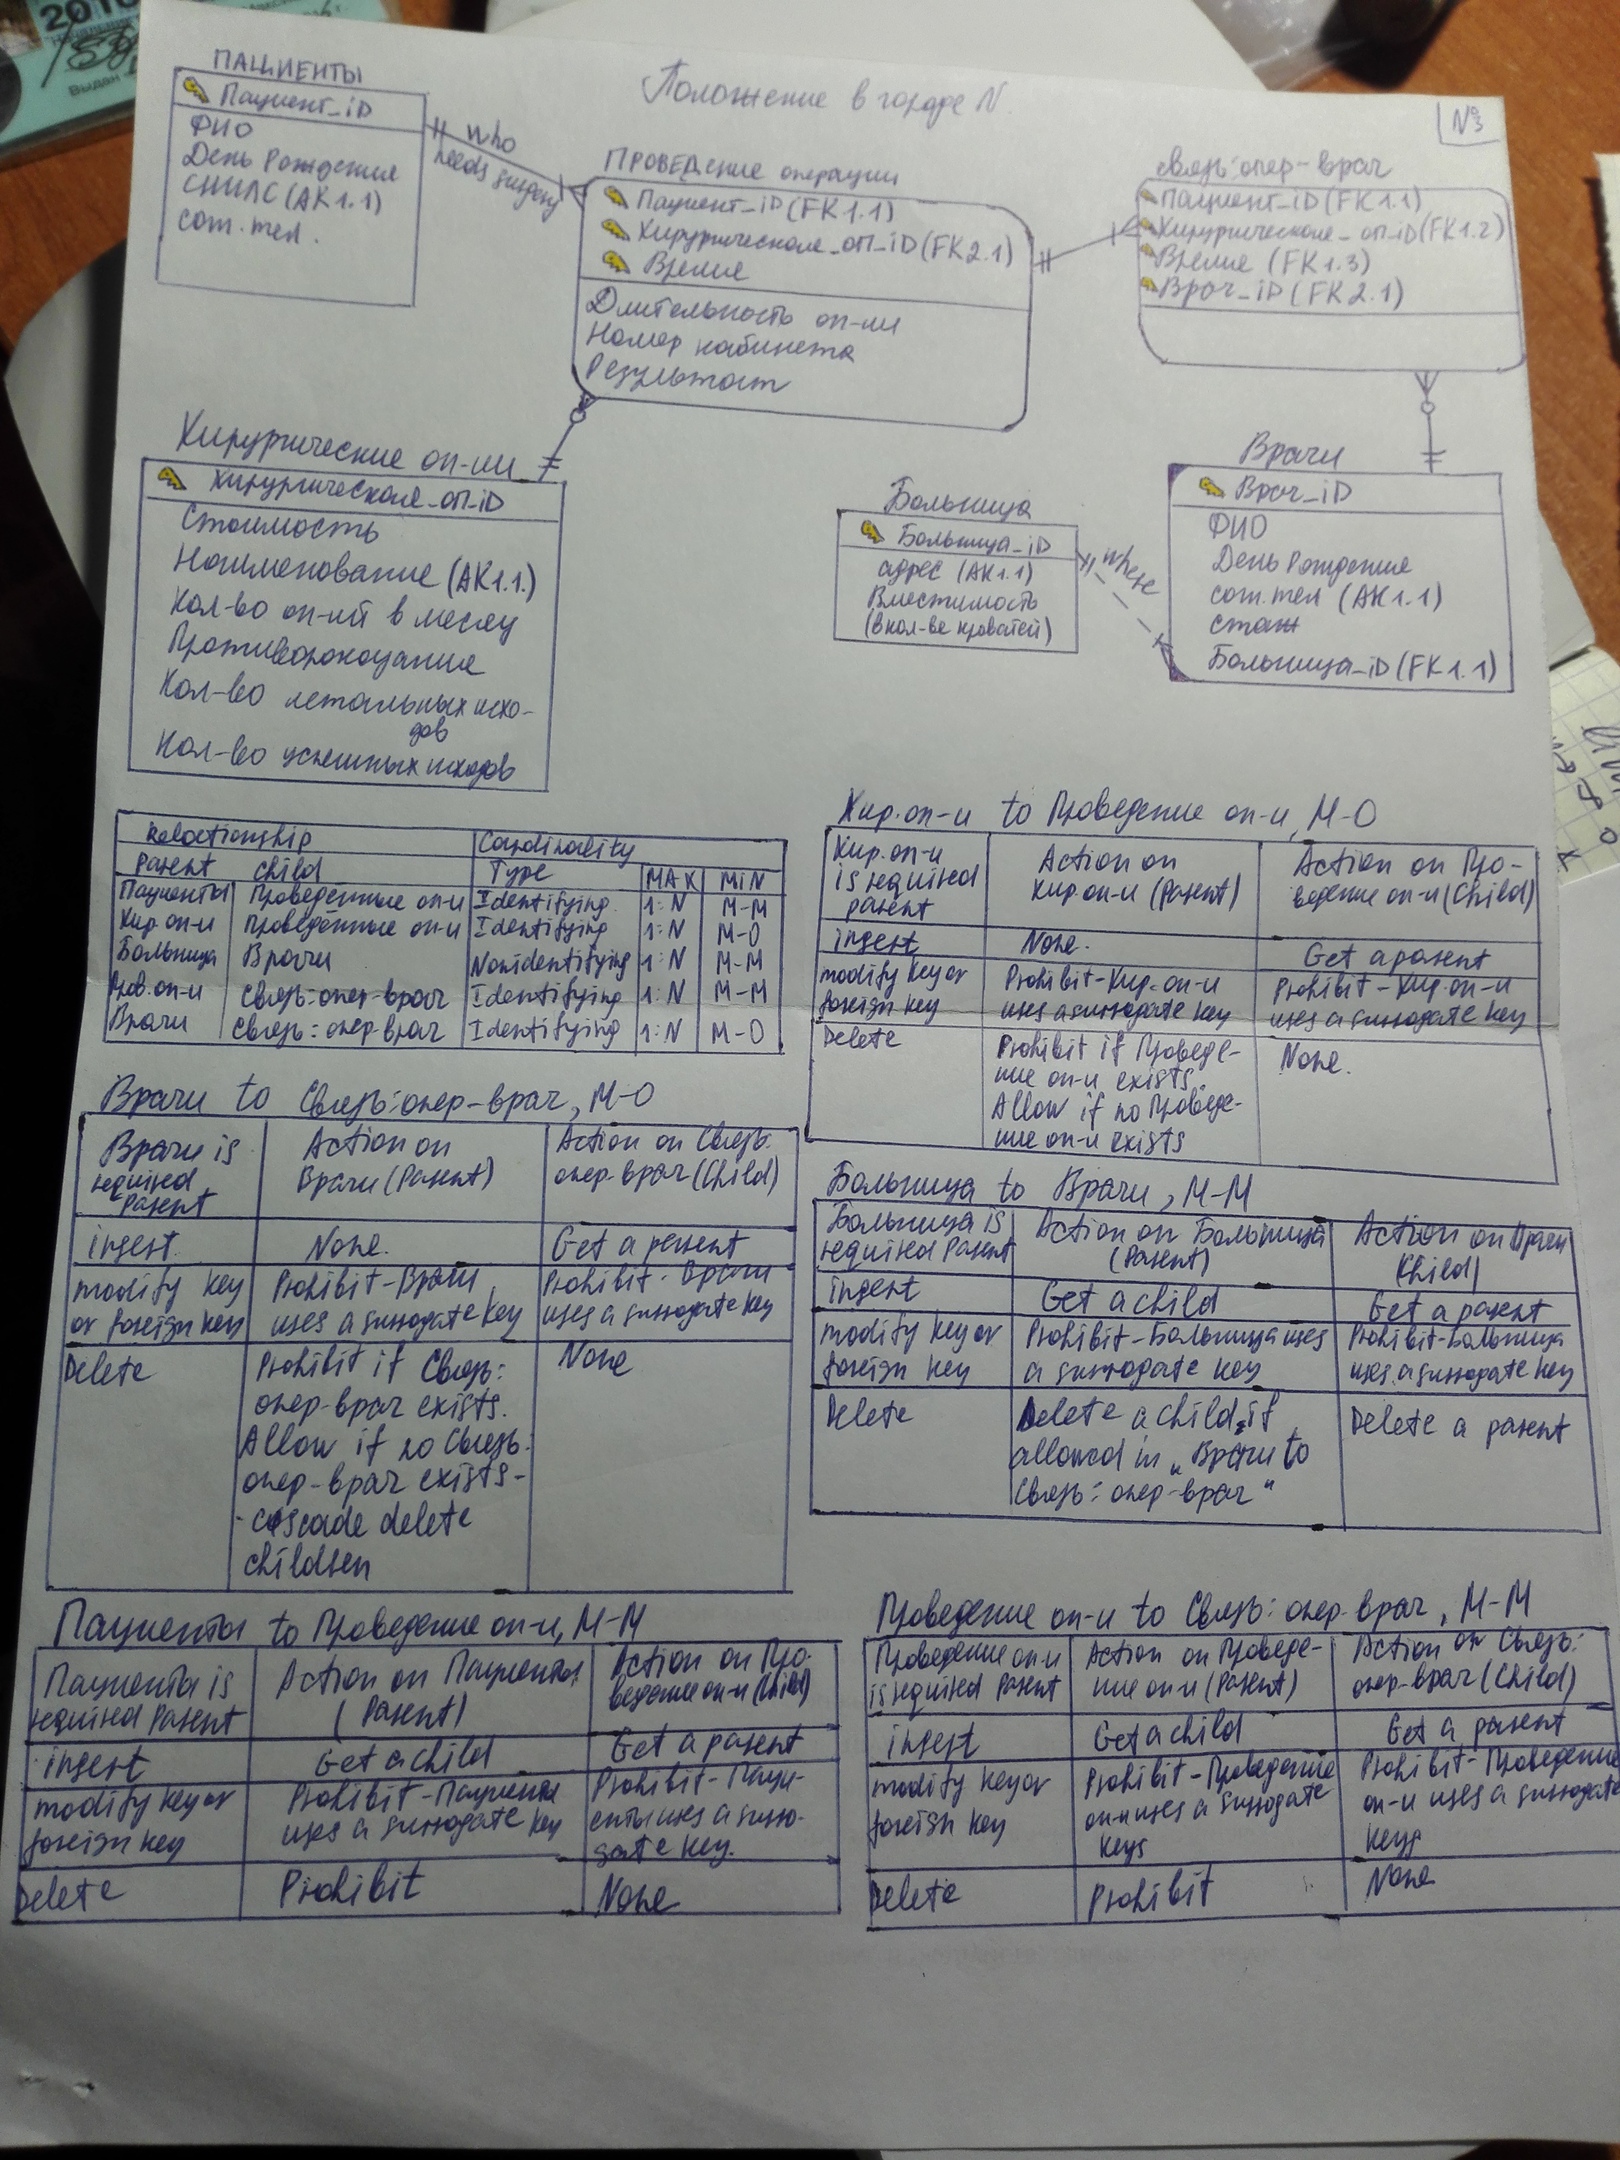 2016
Выдан
Положение в городе N.
№3
ПАЦИЕНТЫ
Пациент_iD
ФИО
День Рождения
СНИЛС (АК1.1)
сот. тел.
who
needs surgery
ПРОВЕДение операции
Пациент_iD (FK1.1)
Хирургическая_оп_iD (FK2.1)
Время
Длительность оп-ии
Номер кабинета
Результат
связь: опер-врач
Пациент_iD (FK1.1)
Хирургическая_оп_iD (FK1.2)
Время (FK1.3)
Врач_iD (FK2.1)
Хирургические оп-ии
Хирургическая_оп_iD
Стоимость
Наименование (АК1.1.)
Кол-во оп-ий в месяц
Противопоказания
Кол-во летальных исхо-
дов
Кол-во успешных исходов
Больница
Больница_iD
адрес (АК1.1)
Вместимость
(в кол-ве кроватей)
where
Врачи
Врач_iD
ФИО
День Рождения
сот. тел (АК1.1)
стаж
Больница_iD (FK1.1)
Relationship Cardinality
Parent Child Type MAX MiN
Пациенты Проведение оп-и Identifying 1:N M-M
Хир. оп-и Проведение оп-и Identifying 1:N M-O
Больница Врачи Nonidentifying 1:N M-M
Пров. оп-и Связь: опер-врач Identifying 1:N M-M
Врачи Связь: опер-врач Identifying 1:N M-O
Хир. оп-и to Проведение оп-и, M-O
Хир. оп-и
is required
parent
Action on
Хир. оп-и (Parent)
Action on Про-
ведение оп-и (Child)
insert None. Get a parent
modify key or
foreign key
Prohibit-Хир. оп-и
uses a surrogate key
Prohibit-Хир. оп-и
uses a surrogate key
Delete
Prohibit if Проведе-
ние оп-и exists.
Allow if no Проведе-
ние оп-и exists
None.
Врачи to Связь: опер-врач, M-O
Врачи is
required
parent
Action on
Врачи (Parent)
Action on Связь:
опер-врач (Child)
insert. None. Get a parent
modify key
or foreign key
Prohibit-Врачи
uses a surrogate key
Prohibit-Врачи
uses a surrogate key
Delete
Prohibit if Связь:
опер-врач exists.
Allow if no Связь:
опер-врач exists-
-cascade delete
children
None
Больница to Врачи, M-M
Больница is
required Parent
Action on Больница
(Parent)
Action on Врачи
(Child)
insert Get a child Get a parent
modify key or
foreign key
Prohibit-Больница uses
a surrogate key
Prohibit-Больница
uses a surrogate key
Delete
Delete a child, if
allowed in „Врачи to
Связь: опер-врач"
Delete a parent
Пациенты to Проведение оп-и, M-M
Пациенты is
required Parent
Action on Пациенты
(Parent)
Action on Про-
ведение оп-и (Child)
insert Get a child Get a parent
modify key or
foreign key
Prohibit-Пациенты
uses a surrogate key
Prohibit-Паци-
енты uses a surro-
gate key.
Delete Prohibit None
Проведение оп-и to Связь: опер-врач, M-M
Проведение оп-и
is required Parent
Action on Проведе-
ние оп-и (Parent)
Action on Связь:
опер-врач (Child)
insert Get a child Get a parent
modify key or
foreign key
Prohibit-Проведение
оп-и uses a surrogate
keys
Prohibit-Проведение
оп-и uses a surrogate
keys
Delete Prohibit None